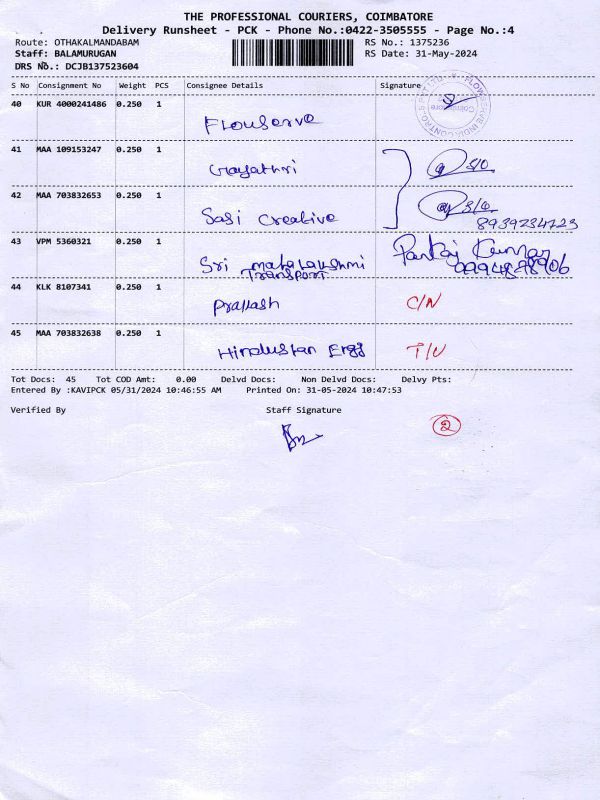 THE PROFESSIONAL COURIERS, COIMBATORE
Delivery Runsheet - PCK - Phone No.:0422-3505555 - Page No.:4
Route: OTHAKALMANDABAM RS No.: 1375236
Staff: BALAMURUGAN RS Date: 31-May-2024
DRS No.: DCJB137523604
S No Consignment No Weight PCS Consignee Details Signature
40 KUR 4000241486 0.250 1
Flowserve
41 MAA 109153247 0.250 1
Gayathri S/O
42 MAA 703832653 0.250 1
Sasi Creative S/O
8939234723
43 VPM 5360321 0.250 1
Pankaj Kumar
Sri Mahalakshmi
Transport
44 KLK 8107341 0.250 1
Prakash C/N
45 MAA 703832638 0.250 1
Hindustan Engg T/U
Tot Docs: 45 Tot COD Amt: 0.00 Delvd Docs: Non Delvd Docs: Delvy Pts:
Entered By :KAVIPCK 05/31/2024 10:46:55 AM Printed On: 31-05-2024 10:47:53
Verified By Staff Signature
2